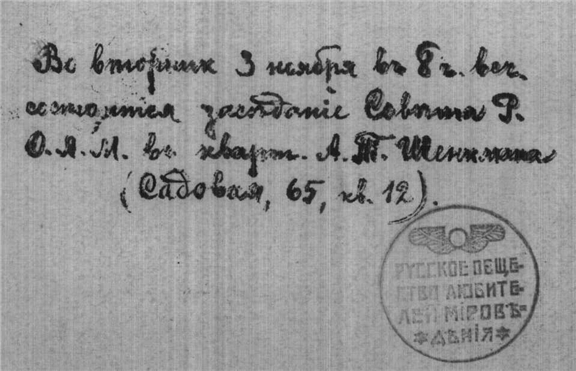 Во вторник 3 ноября въ 8 ч. веч.
состоится засѣданіе Совѣта Р.
О. Л. М. въ кварт. А. Т. Шенкмана
(Садовая, 65, кв. 12).
РУССКОЕ ОБЩЕ-
СТВО ЛЮБИТЕ-
ЛЕЙ МІРОВѢ-
*ДѢНІЯ*